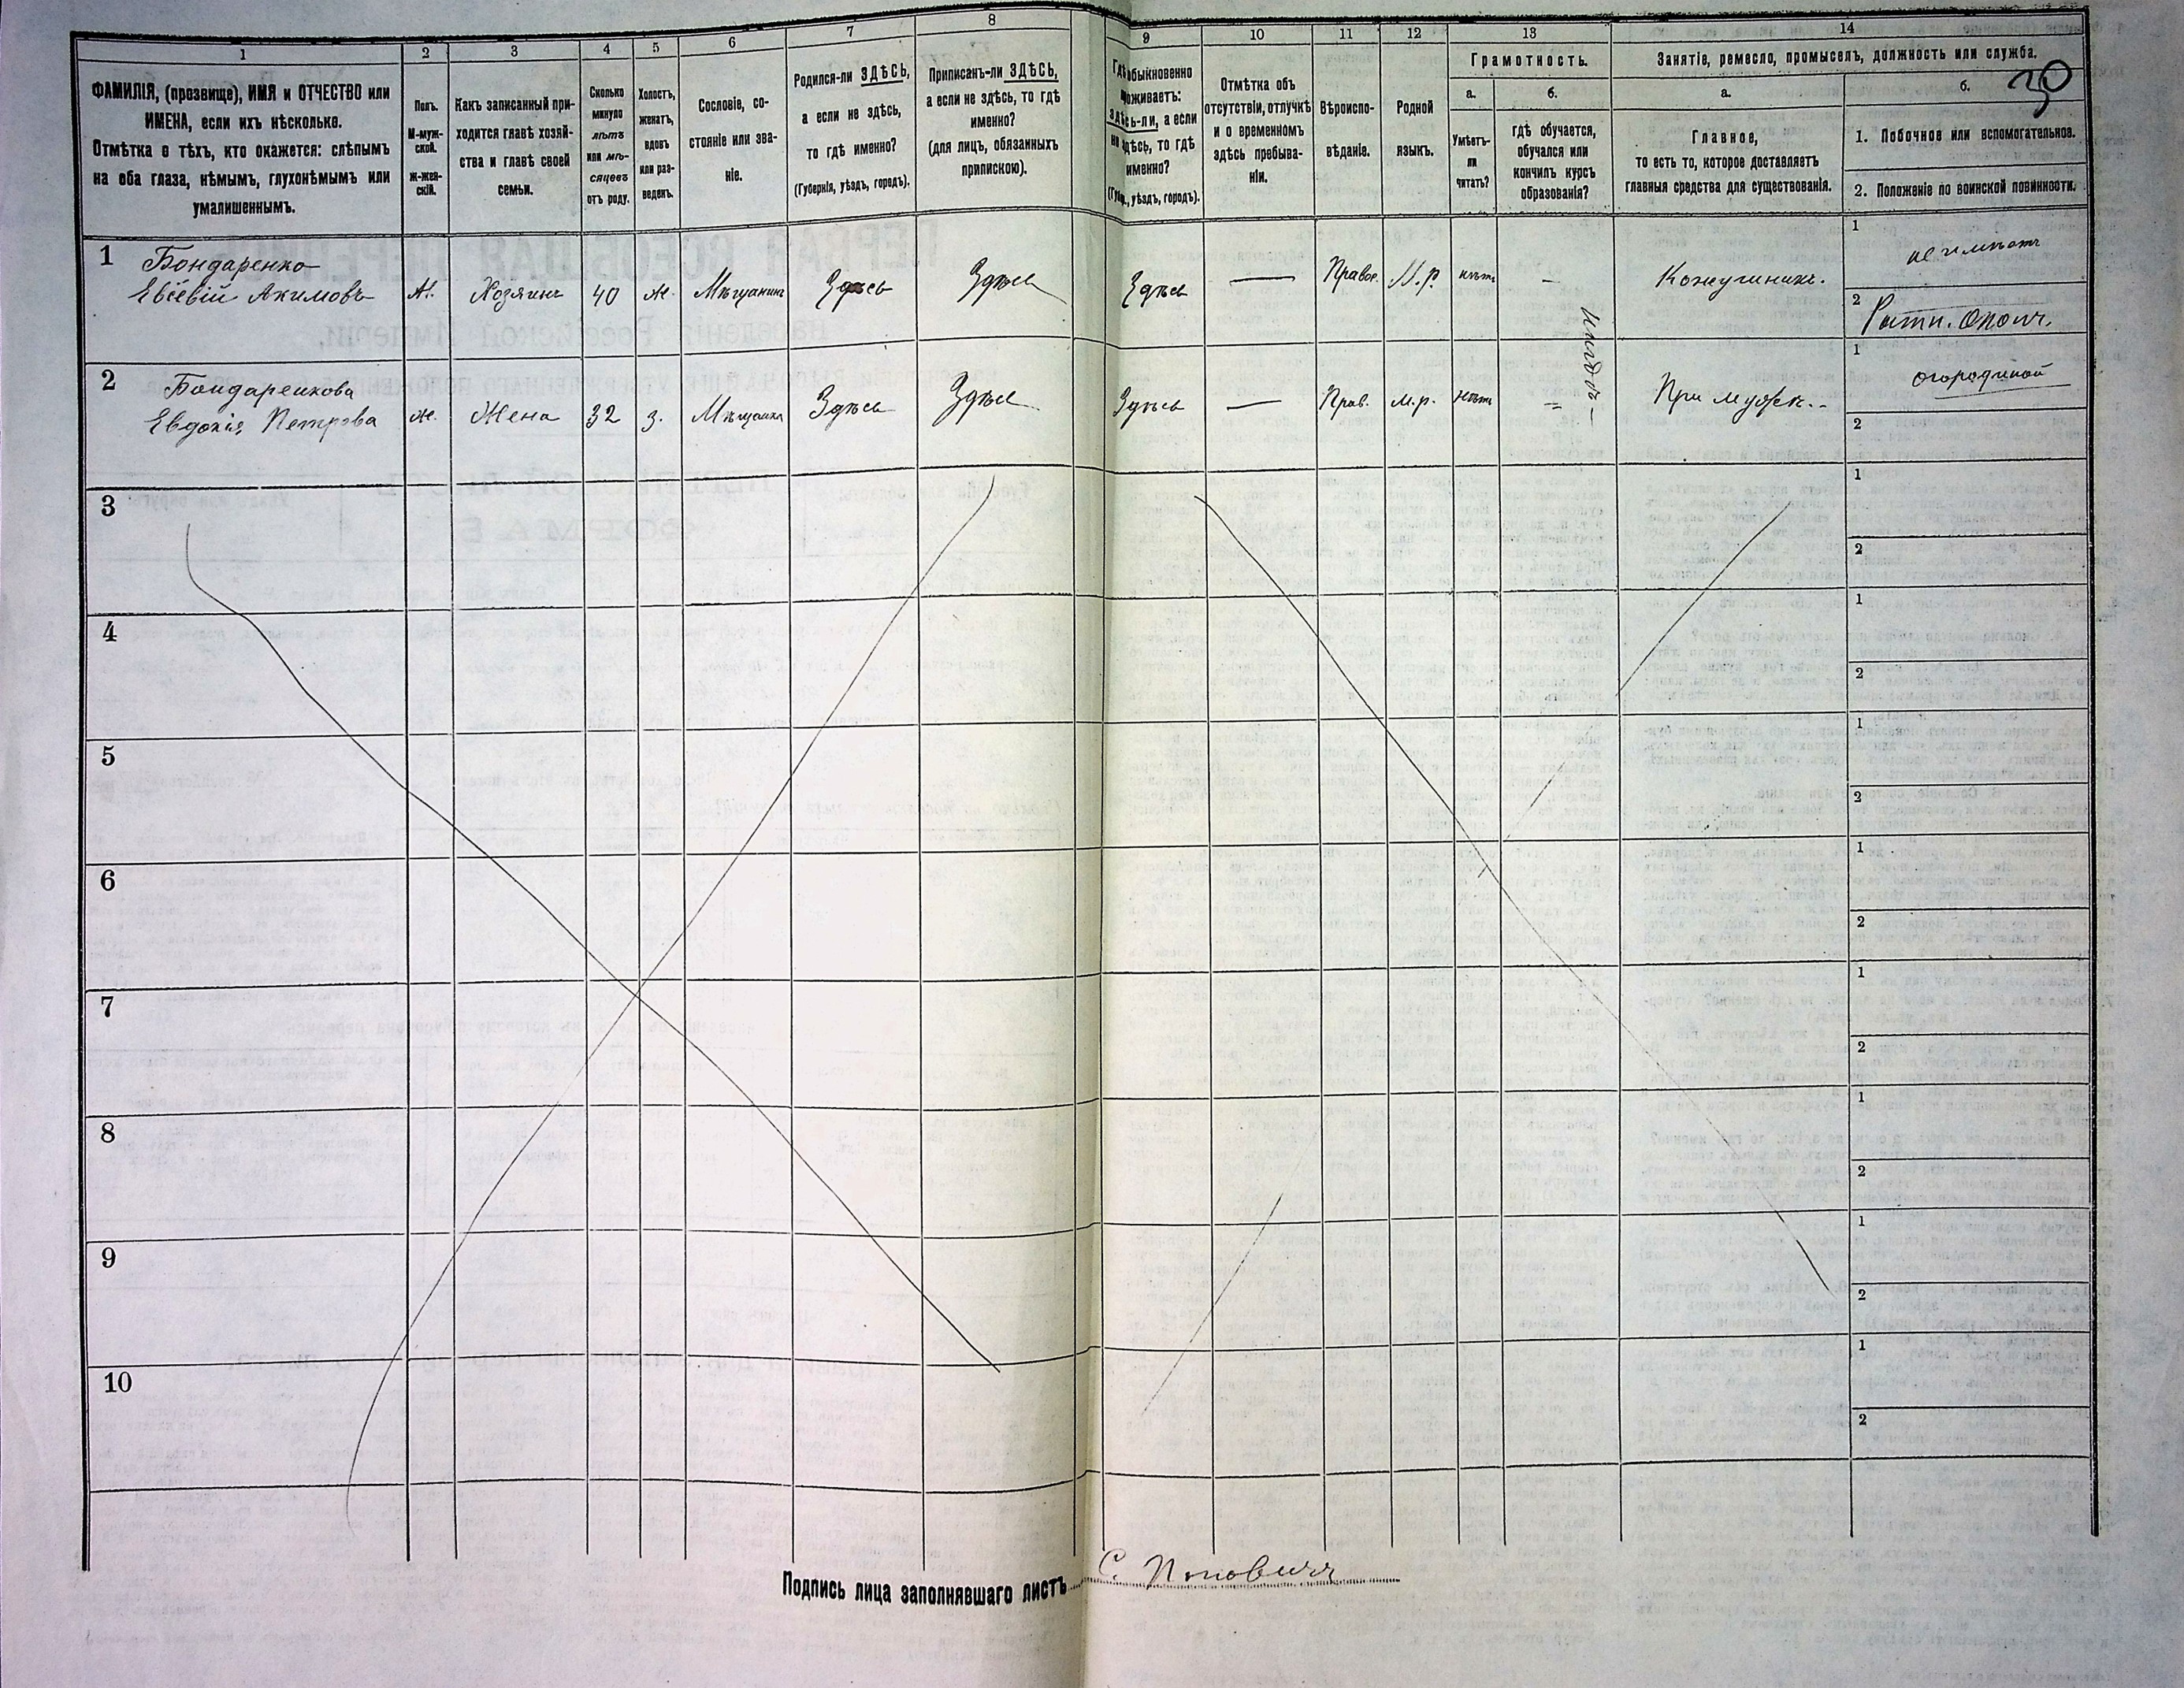 1
2
3
4
5
6
7
8
9
10
11
12
13
14
ФАМИЛІЯ, (прозвище), ИМЯ и ОТЧЕСТВО или
ИМЕНА, если ихъ нѣсколько.
Отмѣтка о тѣхъ, кто окажется: слѣпымъ
на оба глаза, нѣмымъ, глухонѣмымъ или
умалишеннымъ.
Полъ.
М-муж-
ской.
ж-жен-
скій.
Какъ записанный при-
ходится главѣ хозяй-
ства и главѣ своей
семьи.
Сколько
минуло
лѣтъ
или мѣ-
сяцевъ
отъ роду.
Холостъ,
женатъ,
вдовъ
или раз-
веденъ.
Сословіе, со-
стояніе или зва-
ніе.
Родился-ли ЗДѢСЬ,
а если не здѣсь,
то гдѣ именно?
(Губернія, уѣздъ, городъ).
Приписанъ-ли ЗДѢСЬ,
а если не здѣсь, то гдѣ
именно?
(для лицъ, обязанныхъ
припискою).
Гдѣ обыкновенно
проживаетъ:
здѣсь-ли, а если
не здѣсь, то гдѣ
именно?
(Губ., уѣздъ, городъ).
Отмѣтка объ
отсутствіи, отлучкѣ
и о временномъ
здѣсь пребыва-
ніи.
Вѣроиспо-
вѣданіе.
Родной
языкъ.
Грамотность.
а.
Умѣетъ-
ли
читать?
б.
гдѣ обучается,
обучался или
кончилъ курсъ
образованія?
Занятіе, ремесло, промыселъ, должность или служба.
30
а.
Главное,
то есть то, которое доставляетъ
главныя средства для существованія.
б.
1. Побочное или вспомогательное.
2. Положеніе по воинской повинности.
1
Бондаренко
Евсевій Акимовъ
М. Хозяинъ 40 ж. Мѣщанинъ Здѣсь Здѣсь Здѣсь — Правос. М.р. нѣтъ – Кожушникъ.
1 не имѣетъ
2 Ратн. Ополч.
2
Бондаренкова
Евдокія Петрова
ж. Жена 32 з. Мѣщанка Здѣсь Здѣсь Здѣсь — Прав. м.р. нѣтъ = При мужѣ.
1
2
3
1
2
4
1
2
5
1
2
6
1
2
7
1
2
8
1
2
9
1
2
10
1
2
Подпись лица заполнявшаго листъ С. Поповичъ